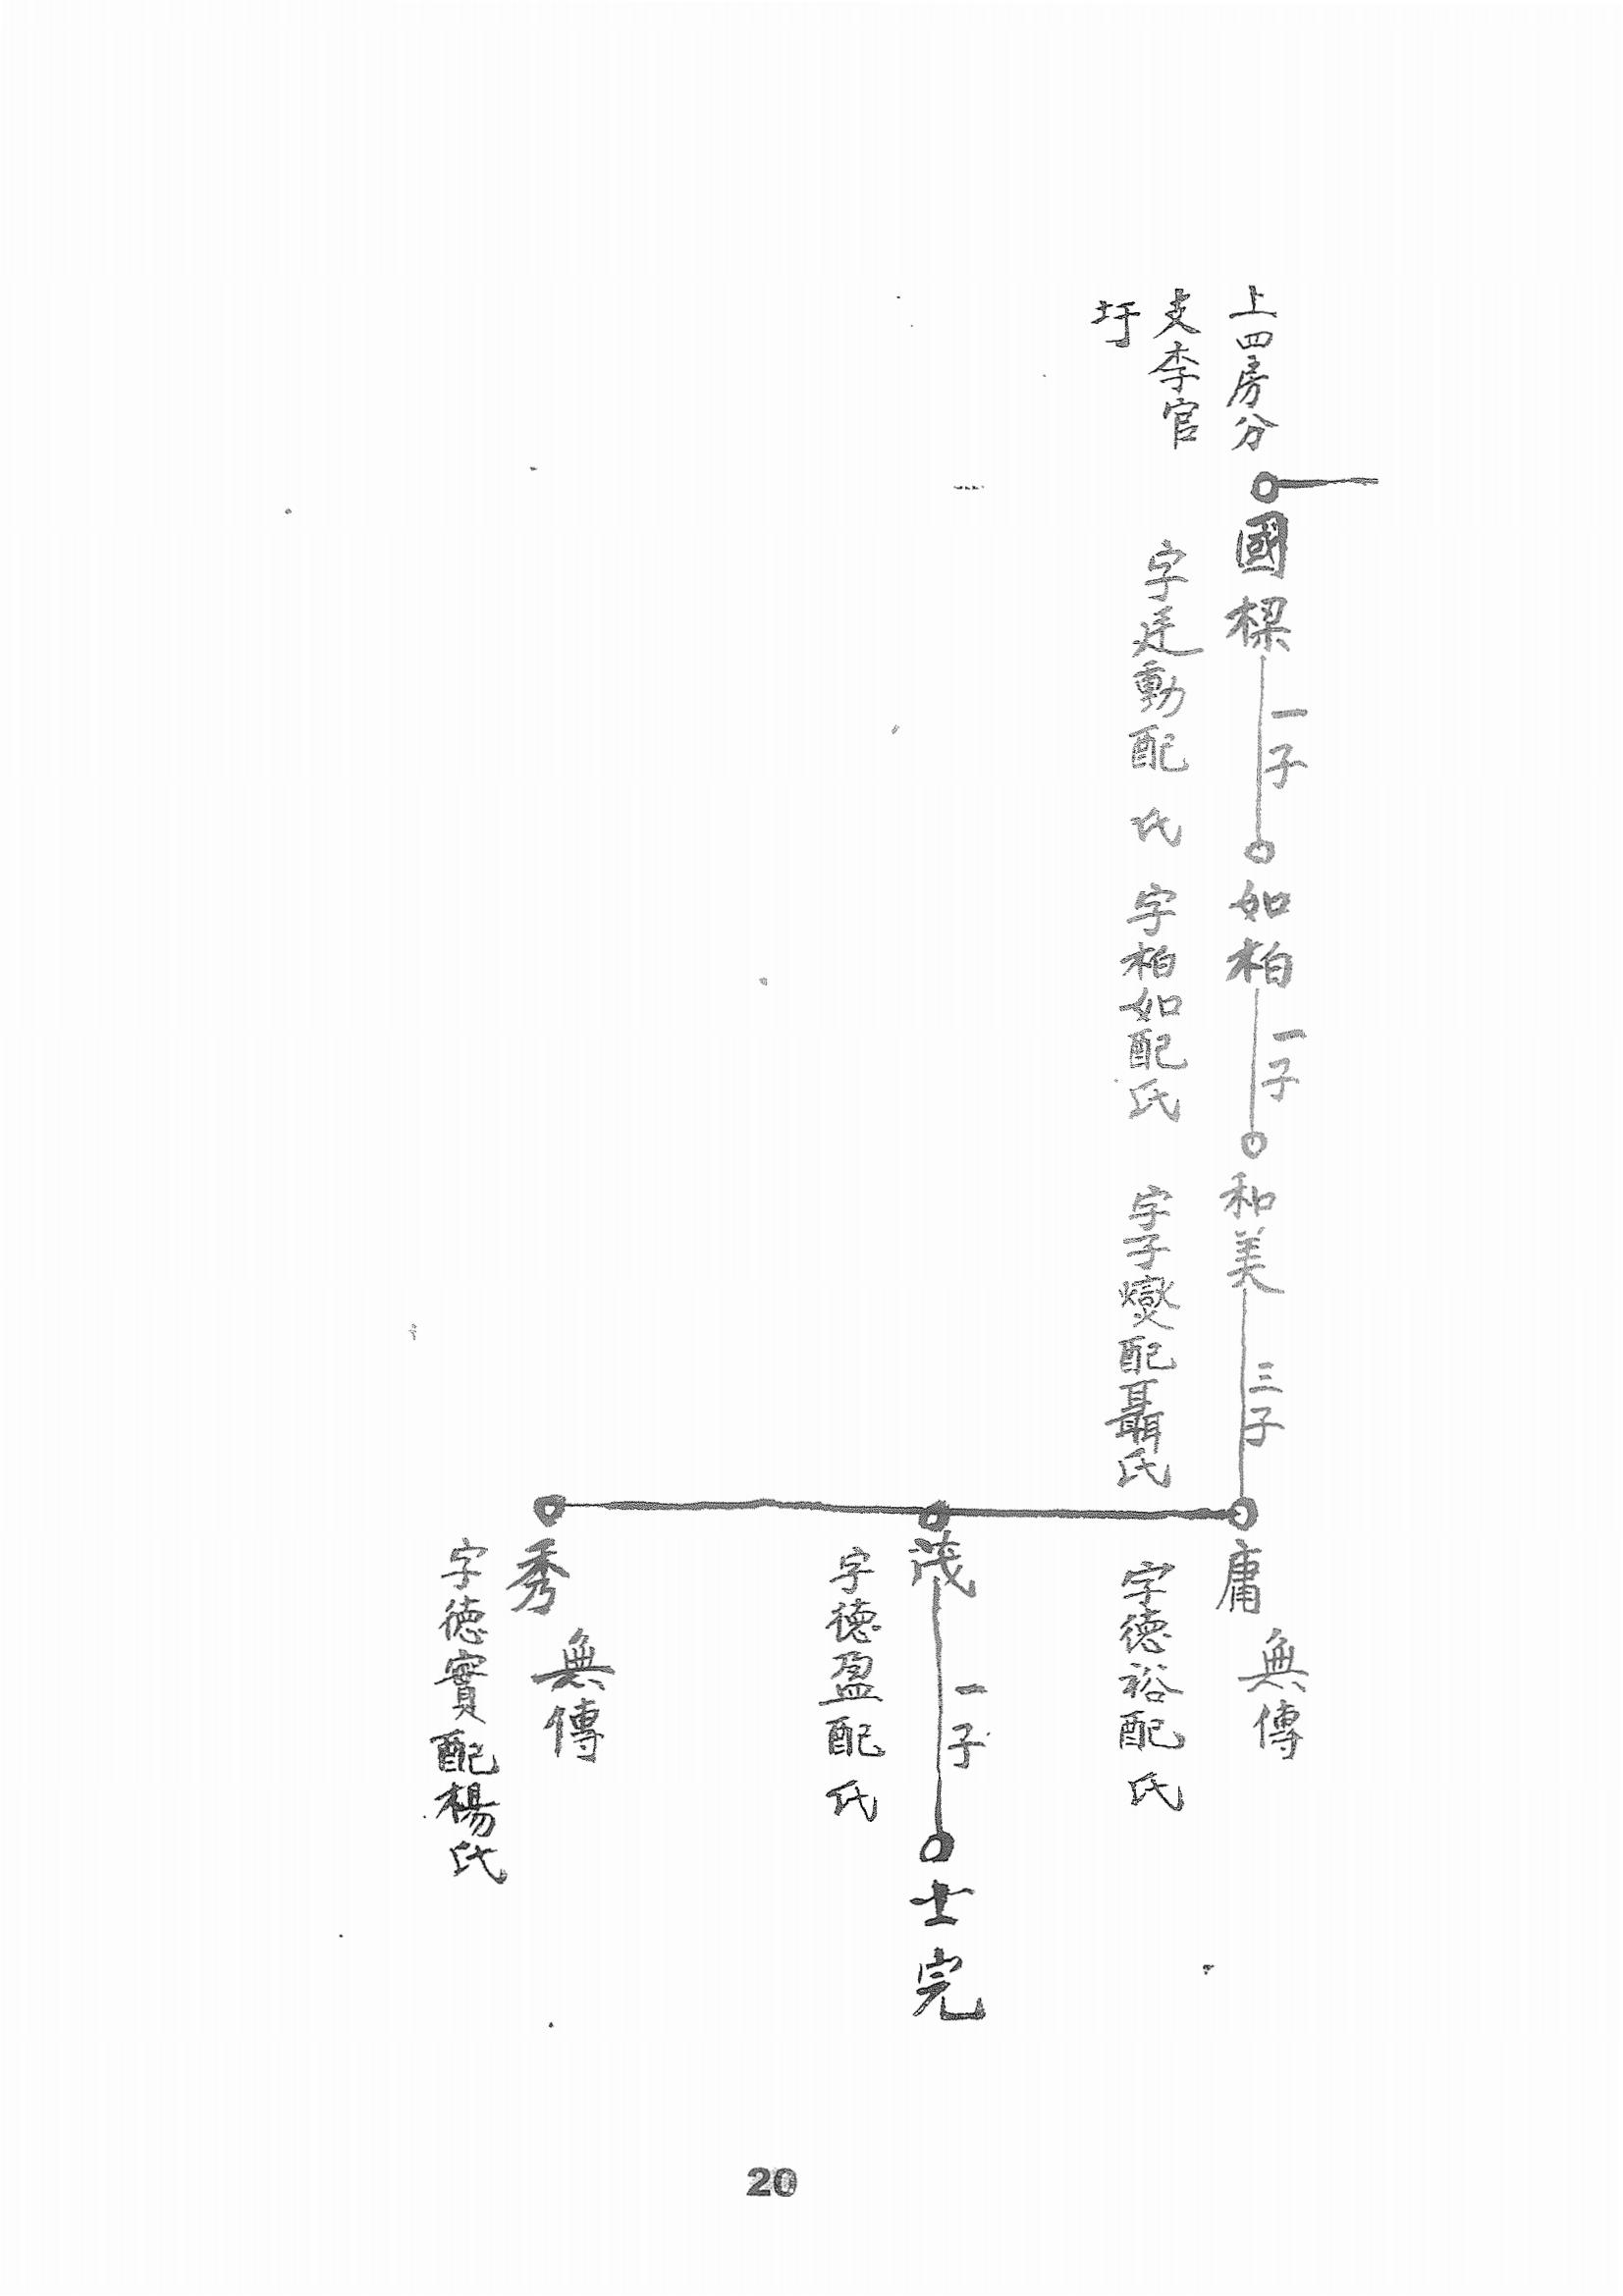 上四房分
支李官
圩
國樑
一子
如柏
一子
和美
三子
字廷動配 氏
字柏如配氏
字子燮配聶氏
庸
無傳
字德裕配 氏
茂
一子
士完
字德盈配 氏
秀
無傳
字德實配楊氏
20